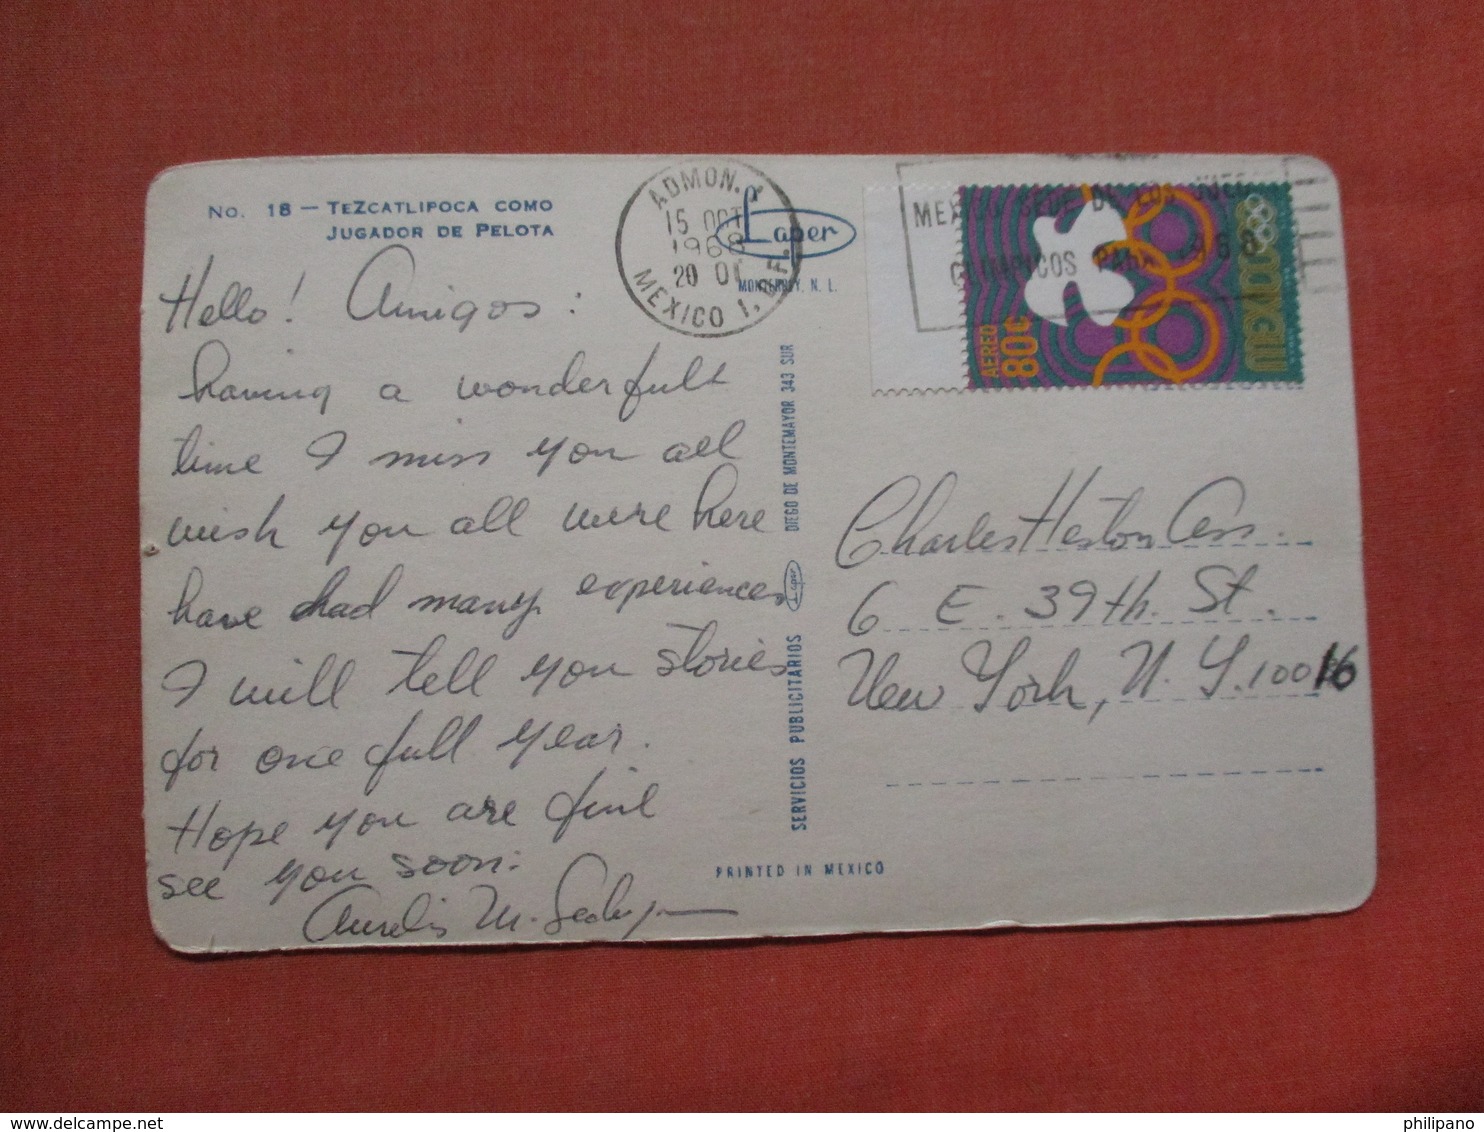 No. 18 — TEZCATLIPOCA COMO
JUGADOR DE PELOTA
Hello! Amigos:
having a wonderfull
time I miss you all
wish you all were here
have had many experiences
I will tell you stories
for one full year.
Hope you are fine
see you soon.
M.
ADMON. 1
15 OCT
1968
20 00
MEXICO 1, D.F.
Laper
MONTERREY, N. L.
SERVICIOS PUBLICITARIOS Laper DIEGO DE MONTEMAYOR 343 SUR
PRINTED IN MEXICO
MEXICO SEDE DE LOS JUEGOS
OLIMPICOS PARA 1968
AEREO
80¢
MEXICO
Charles Heston Ass.
6 E. 39th. St.
New York, N.Y. 10016
www.delcampe.net
philipano